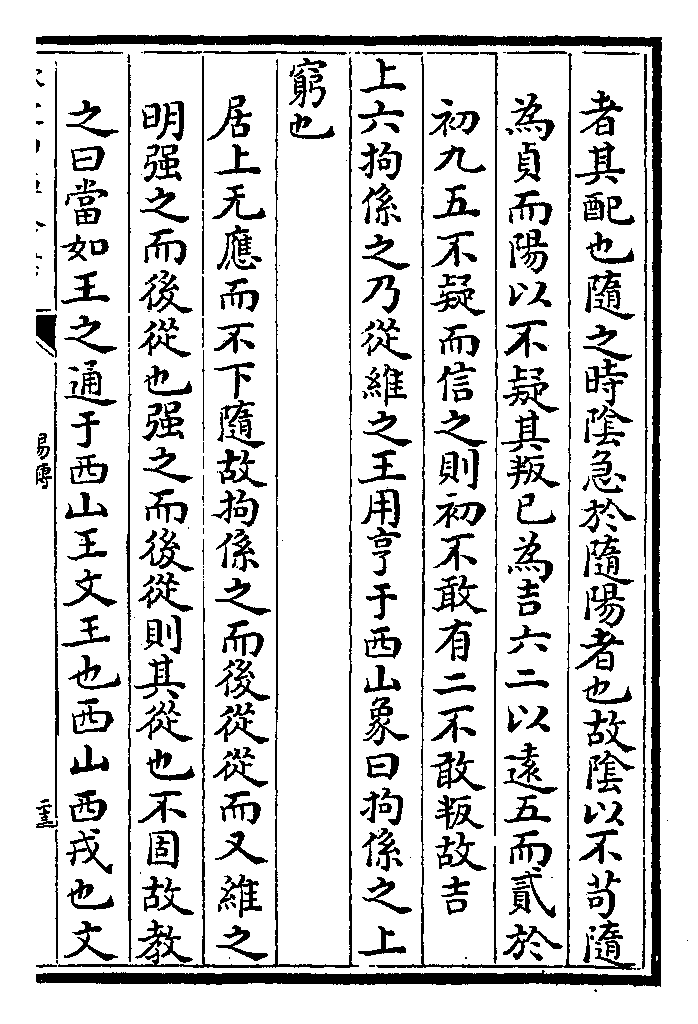 者其配也隨之時陰急於隨陽者也故陰以不苟隨
為貞而陽以不疑其叛已為吉六二以遠五而貳於
初九五不疑而信之則初不敢有二不敢叛故吉
上六拘係之乃從維之王用亨于西山象曰拘係之上
窮也
居上无應而不下隨故拘係之而後從從而又維之
明强之而後從也强之而後從則其從也不固故教
之曰當如王之通于西山王文王也西山西戎也文
易傳